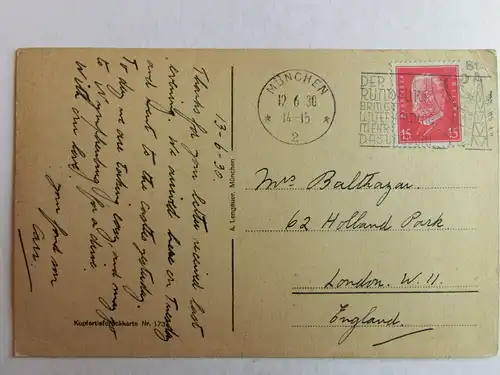 13-6-30.
Thanks for your letter received last
evening. We arrived here on Tuesday
and went to the castles yesterday.
To-day we are taking easy and may go
to Nymphenburg for a drive.
With our love,
your fond son
Carr.
Kupfertiefdruckkarte Nr. 173
A. Lengauer, München.
MÜNCHEN
12.6.30
14-15
2
DER
RUNDFUNK
BRINGT
UNTER
DAS
15 15
Mrs Balthazar.
62 Holland Park.
London. W. 11.
England.